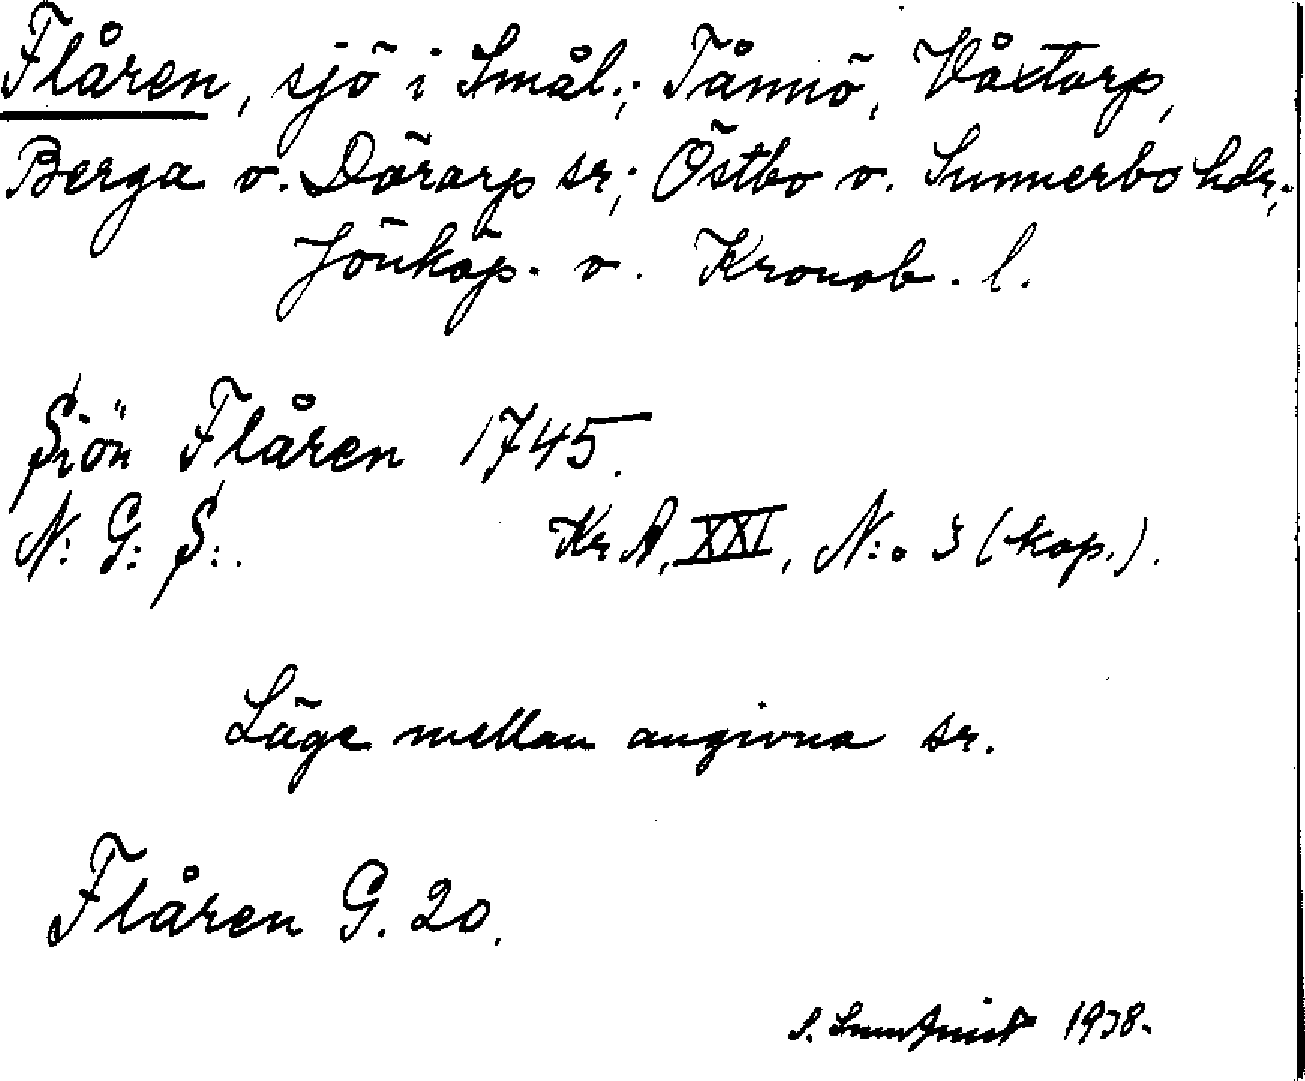 Flåren, sjö i Smål.; Tånnö, Våxtorp,
Berga o. Dörarp sr; Östbo o. Sunnerbo hdr,
Jönköp. o. Kronob. l.
Siön Flåren 1745.
N: G: S:.
Kr A, XXI, N:o 3 (kop.).
Läge mellan angivna sr.
Flåren G. 20.
S. 1938.